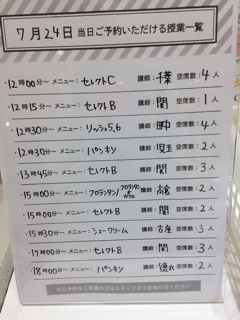 7月24日 当日ご予約いただける授業一覧
・12時00分〜 メニュー：セレクトC 講師：千葉 空席数：4人
・12時15分〜 メニュー：セレクトB 講師：関 空席数：1人
・12時30分〜 メニュー：リッシュ5,6 講師：田中 空席数：4人
・12時30分〜 メニュー：パンキン 講師：児玉 空席数：2人
・13時45分〜 メニュー：セレクトB 講師：関 空席数：3人
・15時00分〜 メニュー：フロランタン/フロランタン 講師： 空席数：2人
・15時00分〜 メニュー：セレクトB 講師：関 空席数：2人
・15時30分〜 メニュー：シュークリーム 講師：古庵 空席数：3人
・17時00分〜 メニュー：セレクトB 講師：関 空席数：3人
・18時00分〜 メニュー：パンキン 講師：徳永 空席数：2人
当日予約をご希望の方はスタッフまでお知らせください